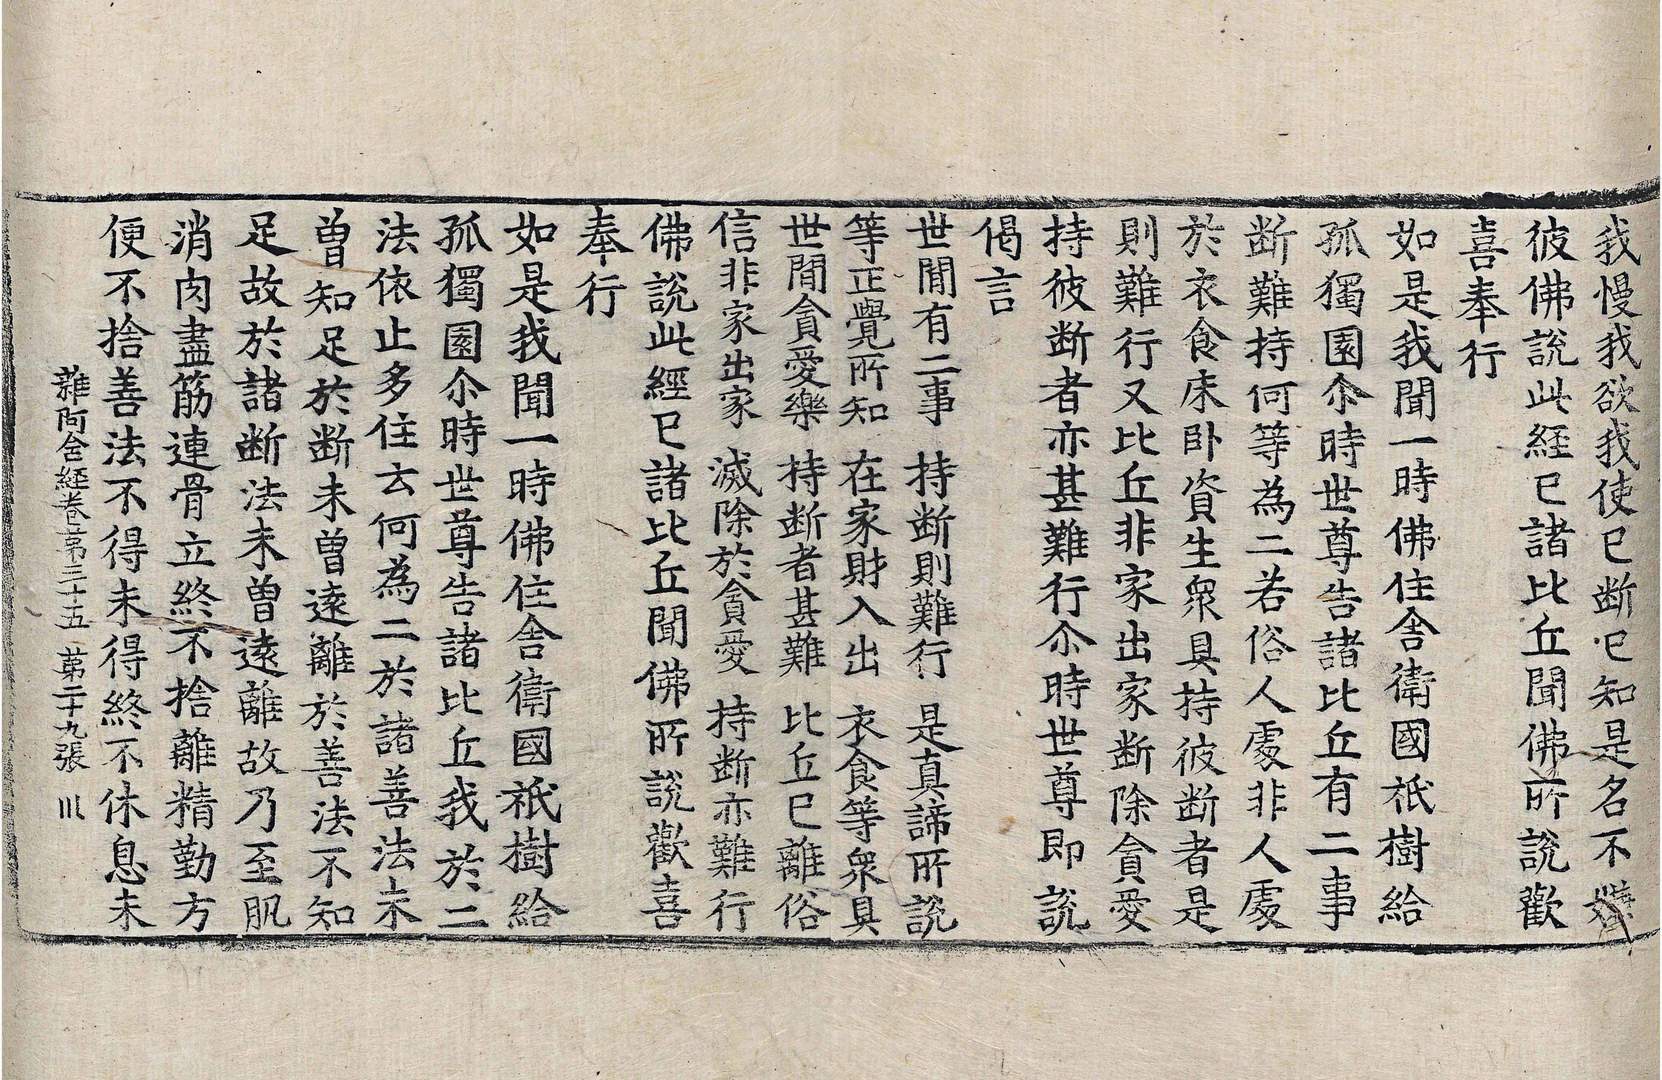 我慢我欲我使已断已知是名不嫌
彼佛說此経已諸比丘聞佛所說歡
喜奉行
如是我聞一時佛住舍衛國祇樹給
孤獨園尒時世尊告諸比丘有二事
断難持何等為二若俗人處非人處
於衣食床卧資生衆具持彼断者是
則難行又比丘非家出家断除貪愛
持彼断者亦甚難行尒時世尊即說
偈言
世間有二事　持断則難行　是真諦所說
等正覺所知　在家財入出　衣食等衆具
世間貪愛樂　持断者甚難　比丘已離俗
信非家出家　滅除於貪愛　持断亦難行
佛說此經已諸比丘聞佛所說歡喜
奉行
如是我聞一時佛住舍衛國祇樹給
孤獨園尒時世尊告諸比丘我於二
法依止多住云何為二於諸善法未
曾知足於断未曾遠離於善法不知
足故於諸断法未曾遠離故乃至肌
消肉盡筋連骨立終不捨離精勤方
便不捨善法不得未得終不休息未
雜阿含經卷第三十五　第二十九張　川